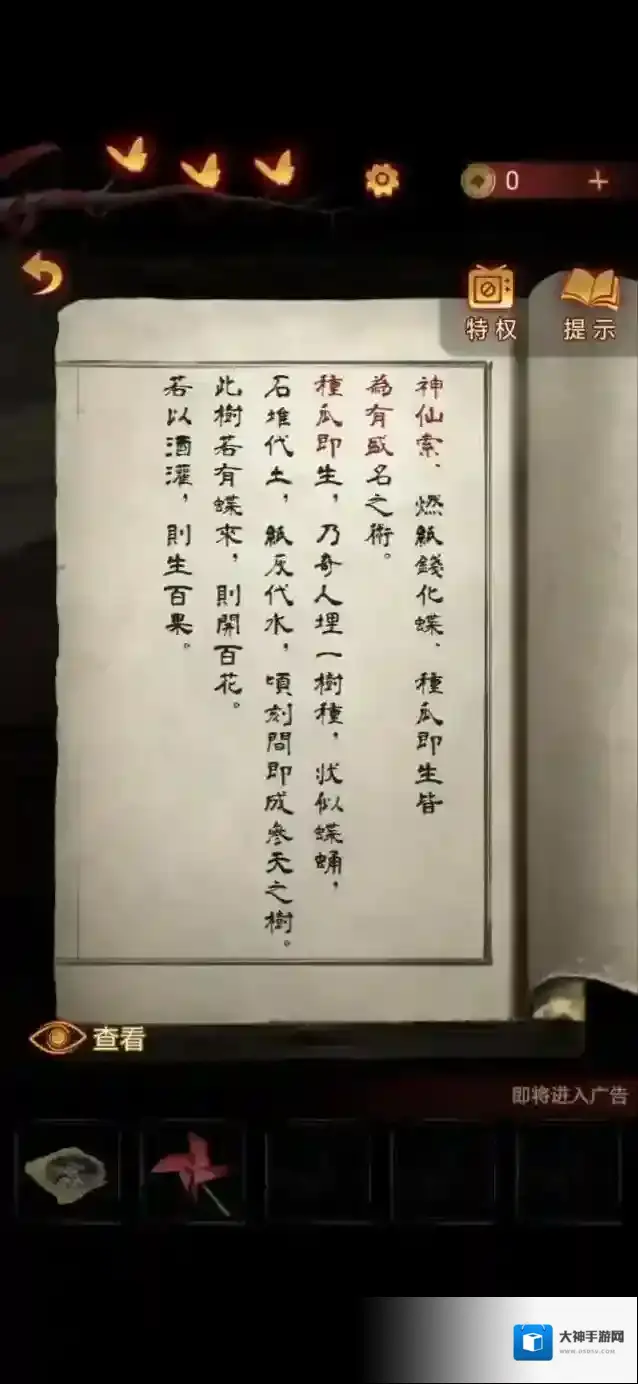 0
特权
提示
神仙索、燃紙錢化蝶、種瓜即生皆
為有盛名之術。
種瓜即生，乃奇人埋一樹種，狀似蝶蛹，
石堆代土，紙灰代水，頃刻間即成參天之樹。
此樹若有蝶來，則開百花。
若以酒灌，則生百果。
查看
即将进入广告
大神手游网